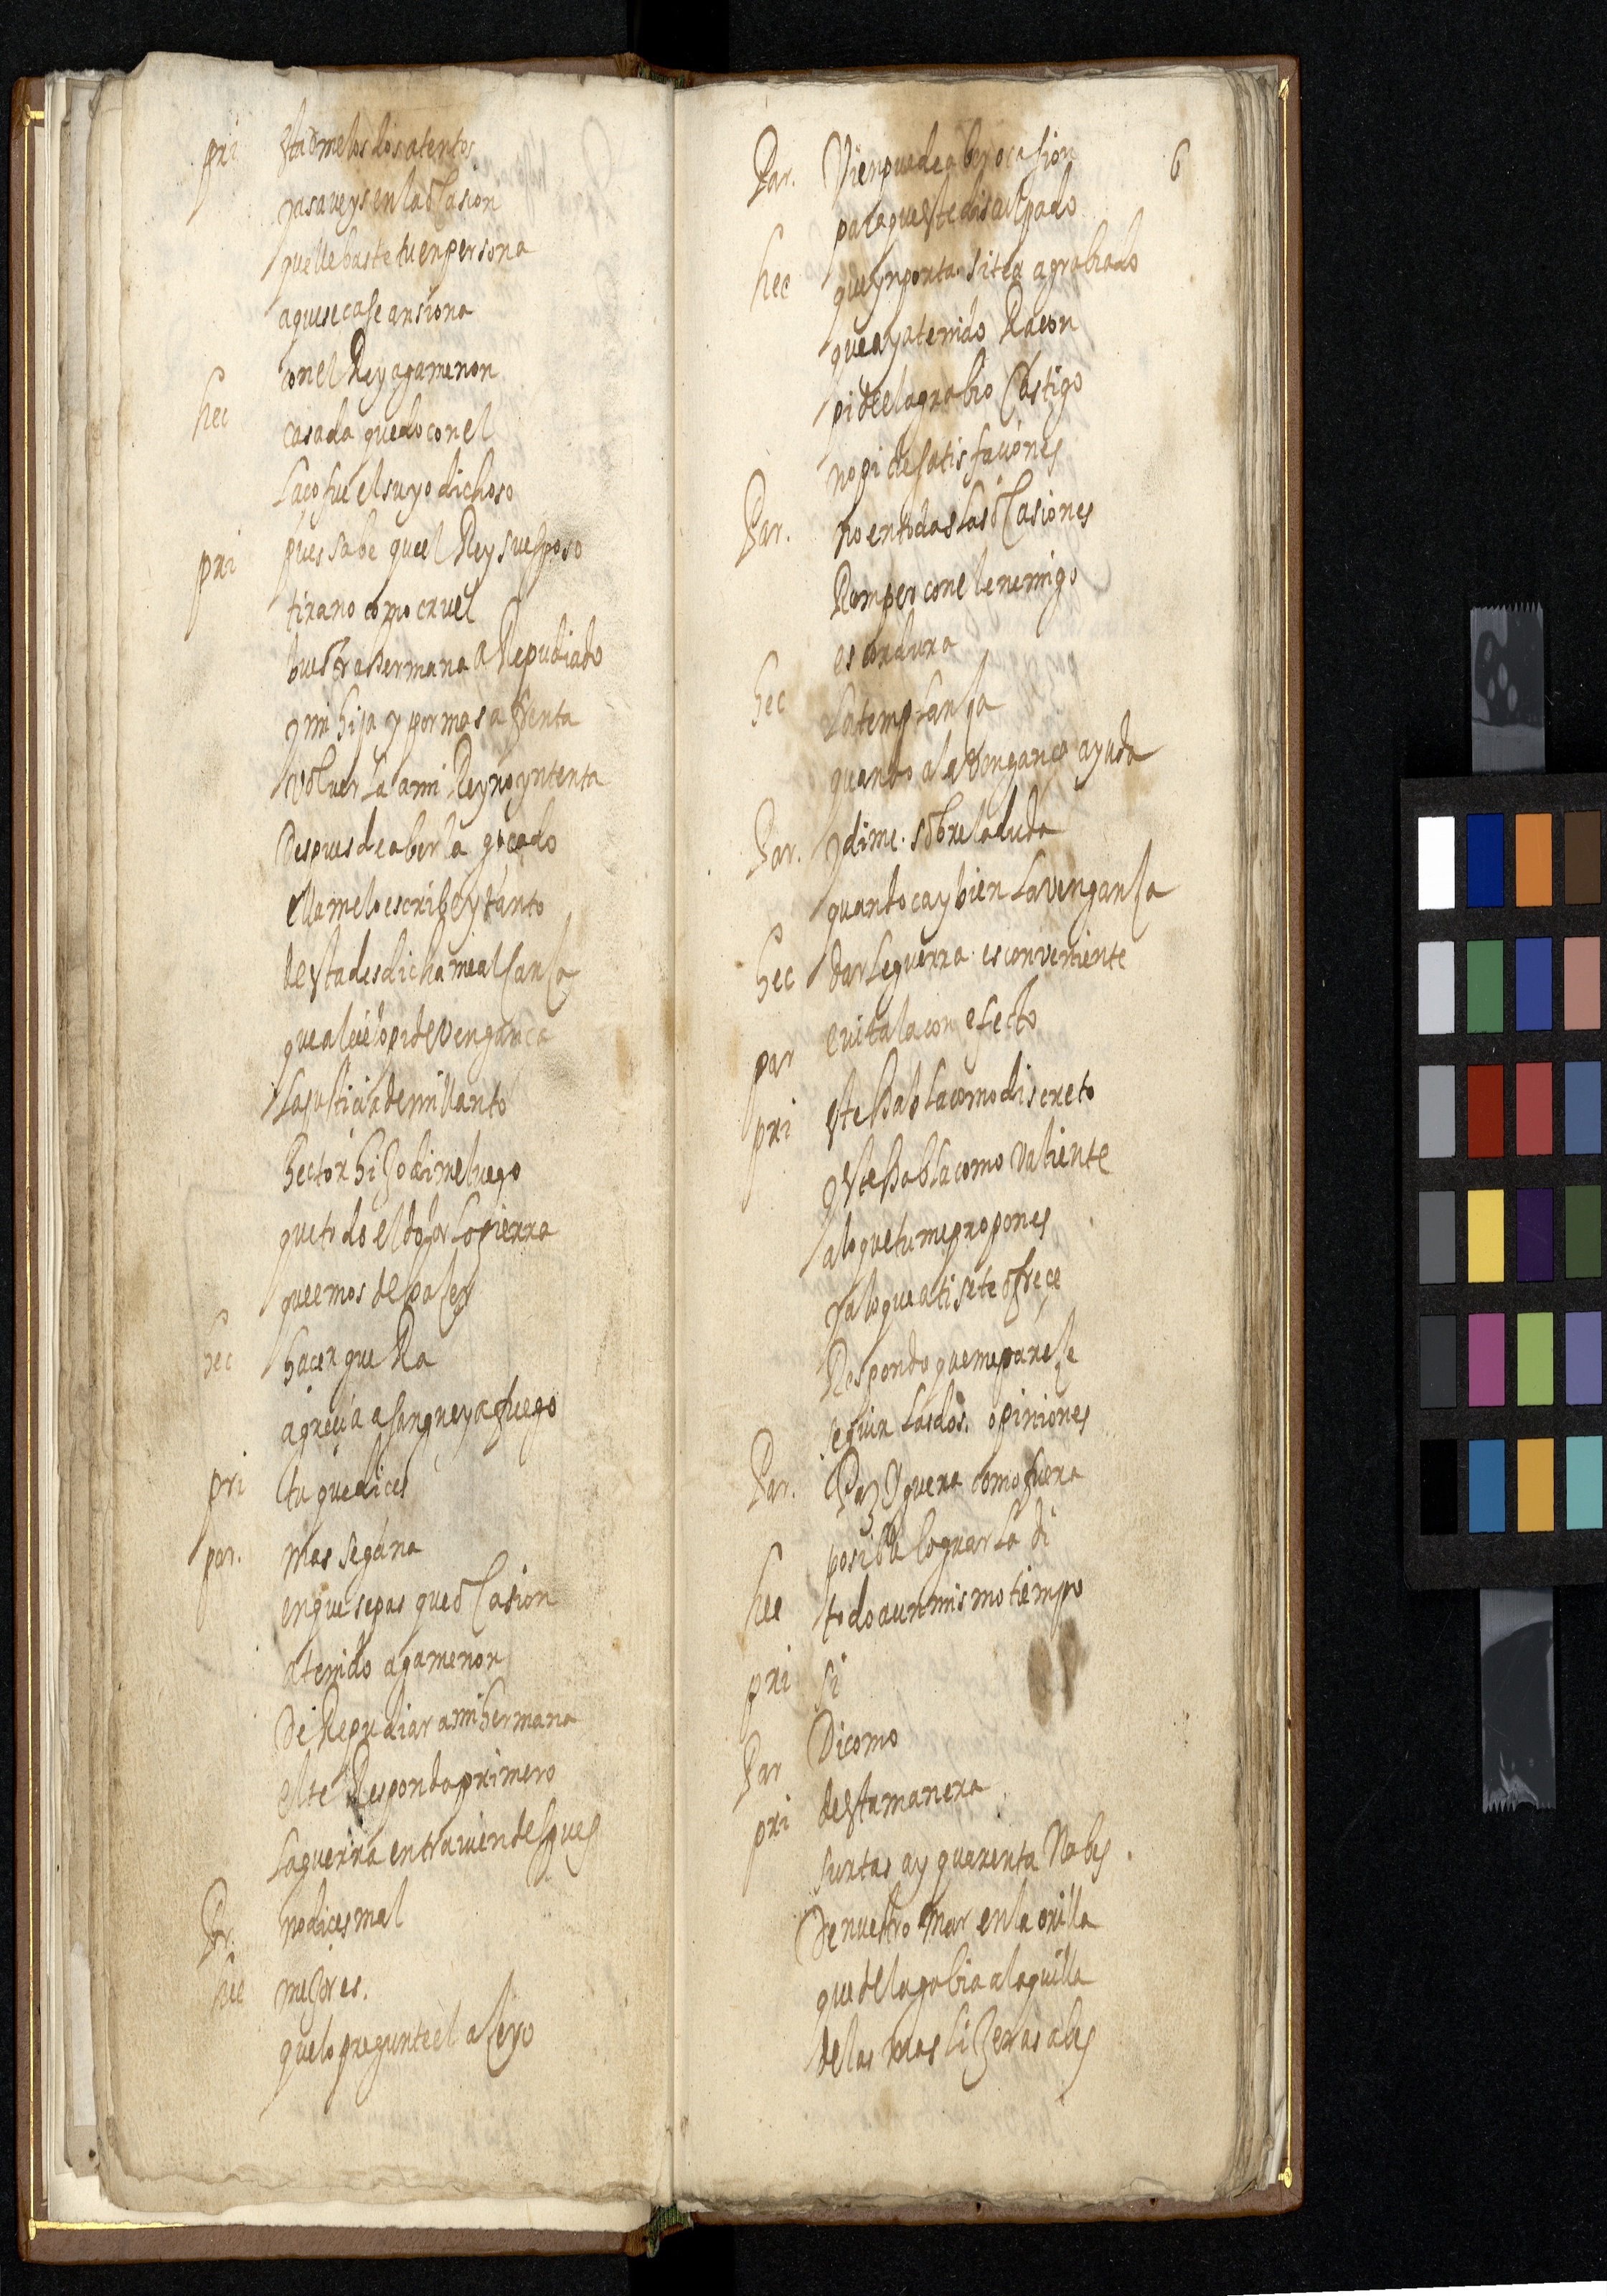 pri estadmelos dos atentos
ya saveys en la ocasion
que llebaste tu en persona
a que se case ansiona
con el Rey agamenon
hec casada quedo con el
laço fue el suyo dichoso
pri pues sabe que el Rey su esposo
tirano como cruel
buestra hermana a Repudiado
y mi hija y por mas afrenta
volverla a mi Reyno yntenta
despues de aberla goçado
ella me lo escribe y tanto
de esta desdicha me alcanza
que al cielo pide vengança
la justicia de mi llanto
hector hijo dime luego
que todo el dolor lo yerra
que emos de hacer
hec hacer guerra
a grecia a sangre y a fuego
pri tu que dices
par. mas segura
en que sepas que ocasion
a tenido agamenon
de Repudiar a mi hermana
este Responda primero
la guerra entra vien despues
Pr. no dices mal
hec mejor es.
que lo pregunte el aceyo
6
Par. Vien puede aber ocasion
para que este disculpado
hec que ynporta si te a agrabiado
que aya tenido Raçon
pide el agrabio castigo
no pide satisfaciones
Par. no en todas las ocasiones
Romper con el enemigo
es cordura
hec la templanza
quando a la vengança ayuda
Par. y dime. sobre la duda
quando cay bien la venganza
hec darle guerra es conveniente
par evitala con efecto
pri este habla como discreto
y este habla como valiente
a lo que tu me propones
y a lo que a ti se te ofreçe
Respondo que me parece
seguir las dos. opiniones
Par. Paz y guerra como fuera
posible lograrla di
hec todo a un mismo tiempo
pri si
Par Di como
pri de esta manera
surtas ay quarenta Nabes.
De nuestro mar en la orilla
que de la gabia a la quilla
de las mas lijeras abes